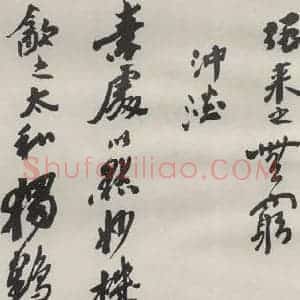 強来之無窮
沖澹
素處以默妙機
飲之太和獨鶴
Shufaziliao.COM